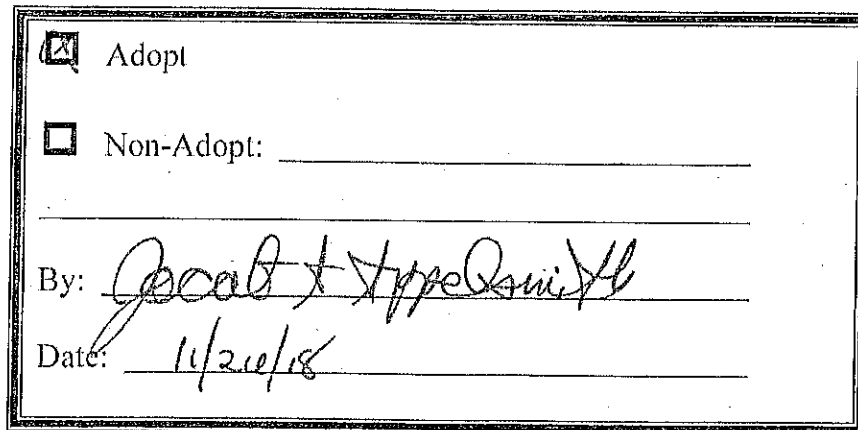 Adopt
Non-Adopt:
By: Jacob Appelsmith
Date: 11/26/18